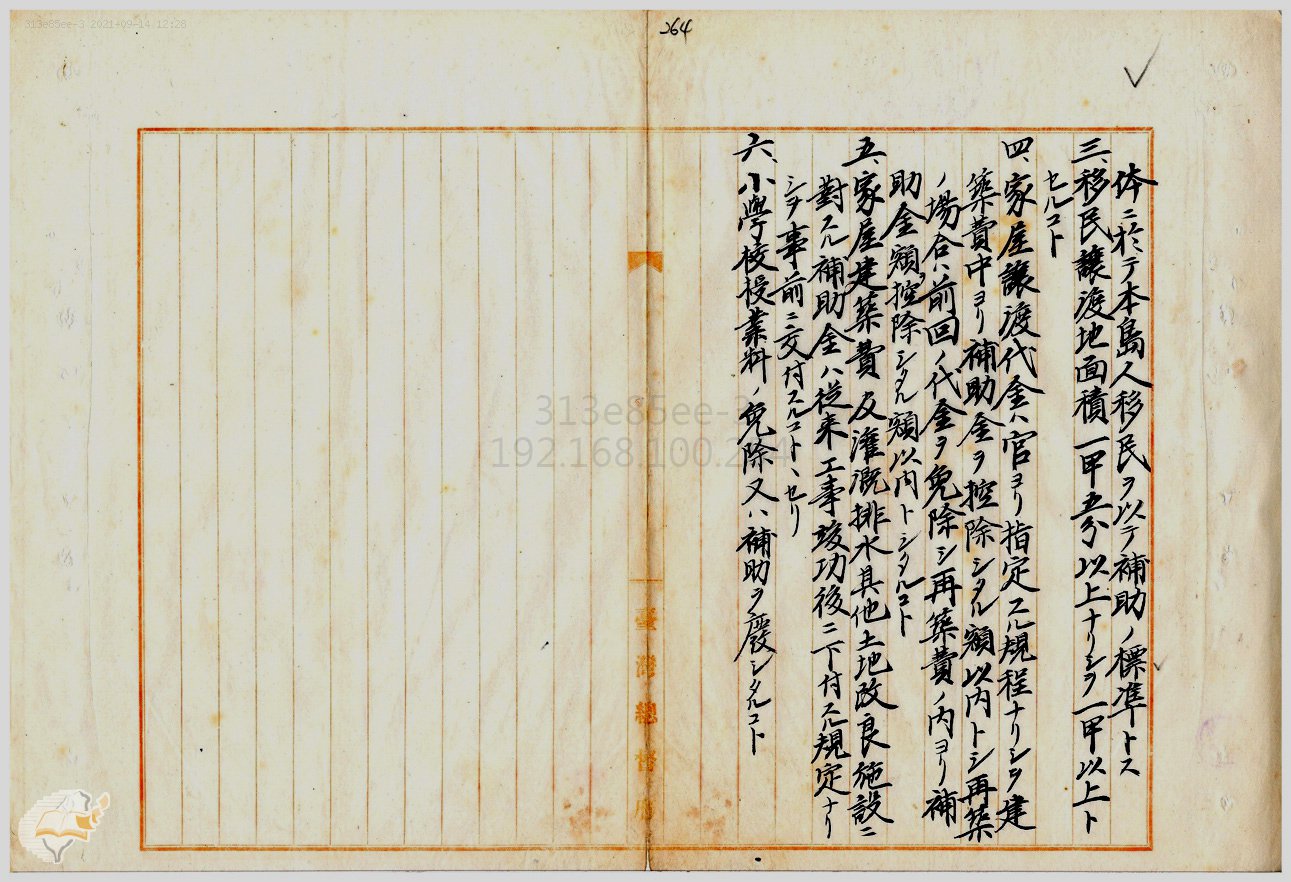 313e85ee-3 2021-09-14 12:28
264
体ニ於テ本島人移民ヲ以テ補助ノ標準トス
三、移民讓渡地面積一甲五分以上ナリシヲ一甲以上ト
セルコト
四、家屋讓渡代金ハ官ヨリ指定スル規程ナリシヲ建
築費中ヨリ補助金ヲ控除シタル額以内トシ再築
ノ場合ハ前回ノ代金ヲ免除シ再築費ノ内ヨリ補
助金額控除シタル額以内トシタルコト
五、家屋建築費及灌漑排水其他土地改良施設ニ
對スル補助金ハ從来工事竣功後ニ下付スル規定ナリ
シヲ事前ニ交付スルコトヽセリ
六、小學校授業料ノ免除又ハ補助ヲ廢シタルコト
臺灣總督府
313e85ee-3
192.168.100.2